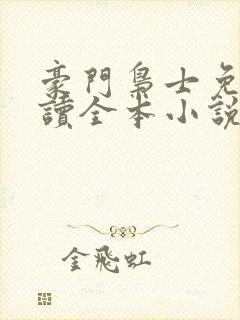 豪門梟士免
讀全本小說
金飛虹